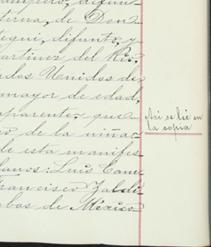 terna, de Don
tegui, difunto, y
artinez del Rio,
ados Unidos de
mayor de edad,
aparentez que
o de la niña
de esta manifes
banos: Luis Cam
Francisco Zaldi
bos de México
Asi se lee en
la copia